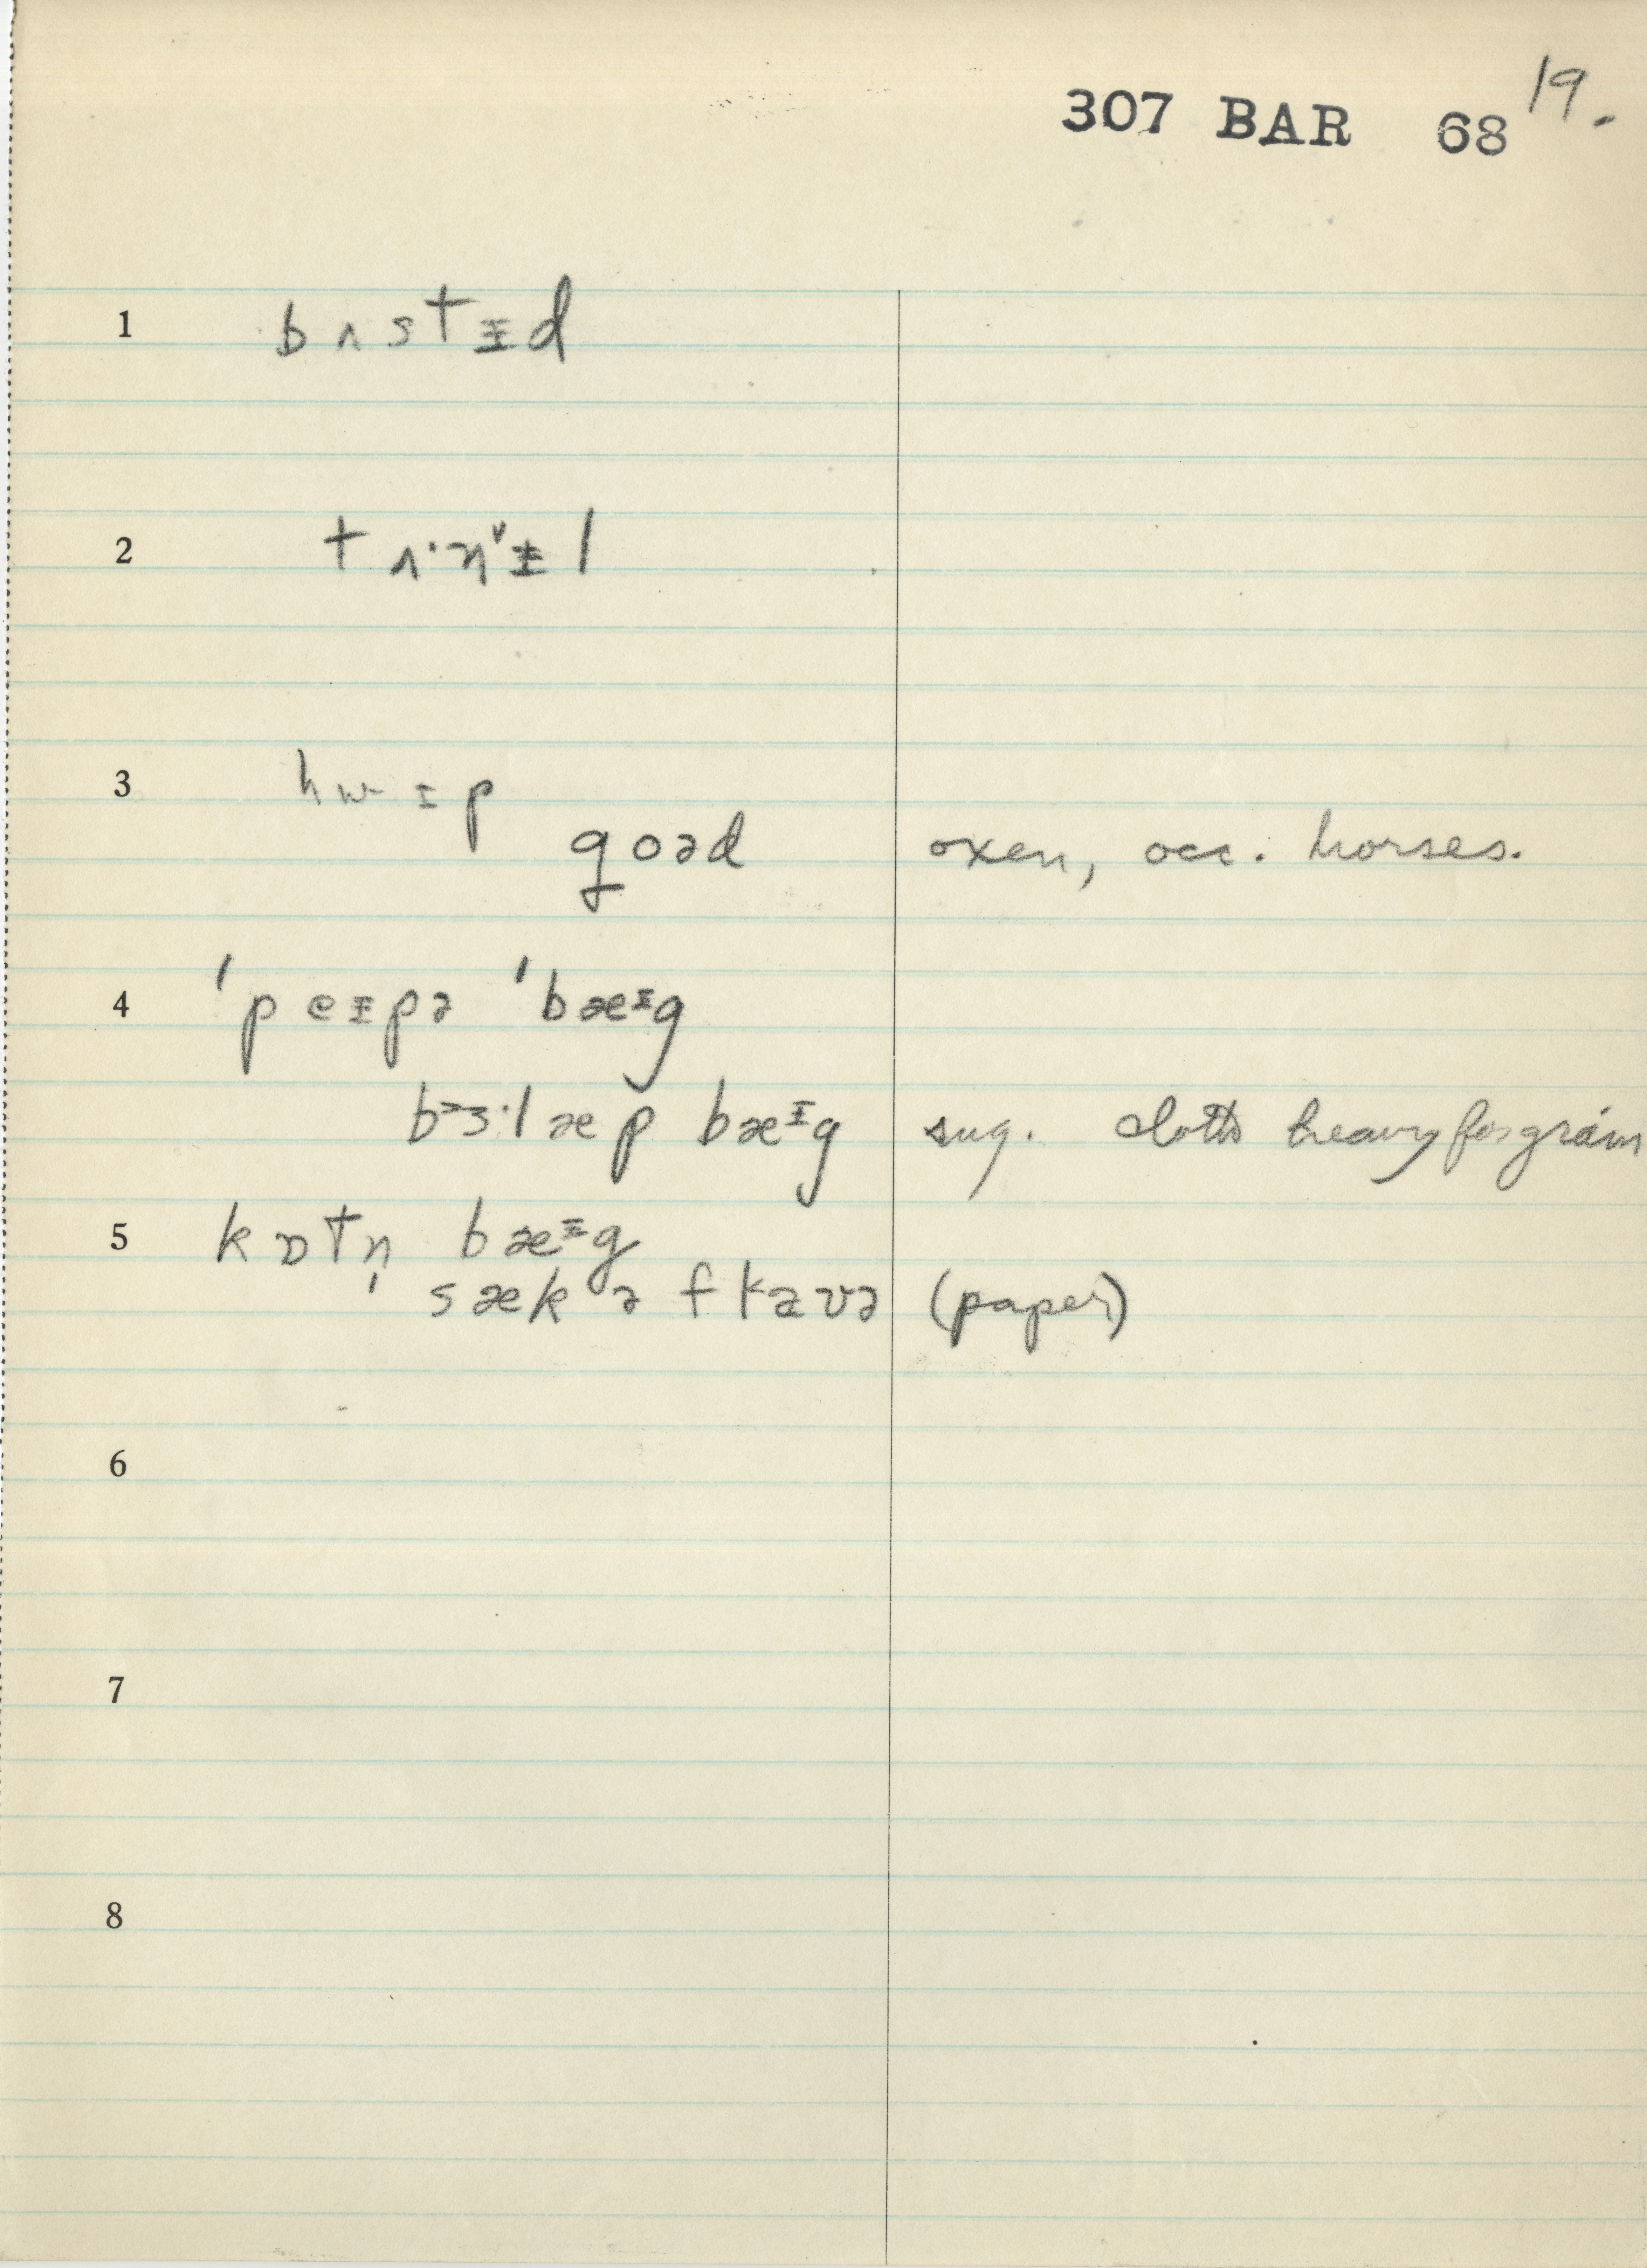 307 BAR 68 19.
1 bʌstɪ̵d
2 tʌ·n˅ɪ̵l
3 hwɪp
goəd oxen, occ. horses.
4 ˈpeɪ̵pə ˈbæɪ̵g
bɜ·læp bæɪg sug. cloth heavy for grain
5 kɒtn̩ bæɪ̵g
sæk ə
(paper)
6
7
8